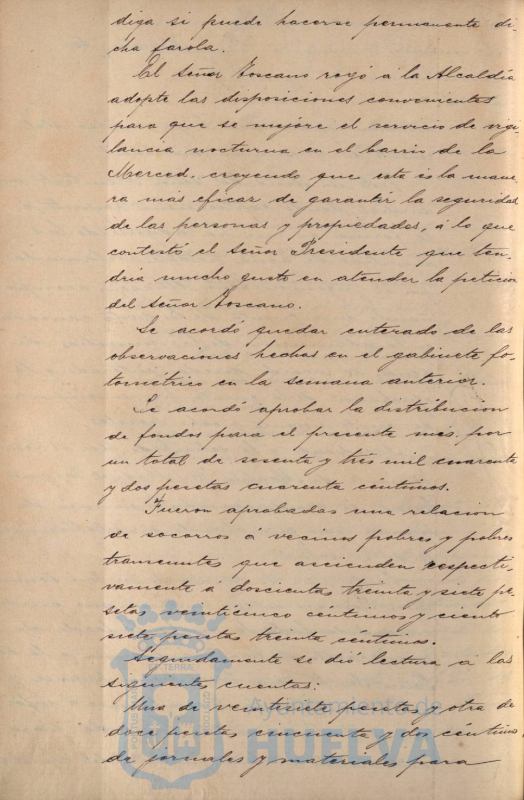 diga si puede hacerse permanente di-
cha farola.
El Señor Toscano rogó á la Alcaldía
adopte las disposiciones convenientes
para que se mejore el servicio de vigi-
lancia nocturna en el barrio de la
Merced, creyendo que esta es la mane-
ra más eficaz de garantir la seguridad
de las personas y propiedades, á lo que
contestó el Señor Presidente que ten-
dría mucho gusto en atender la petición
del Señor Toscano.
Se acordó quedar enterado de las
observaciones hechas en el gabinete fo-
tométrico en la semana anterior.
Se acordó aprobar la distribución
de fondos para el presente mes, por
un total de sesenta y tres mil cuarenta
y dos pesetas cuarenta céntimos.
Fueron aprobadas una relación
de socorros á vecinos pobres y pobres
transeuntes que ascienden respecti-
vamente á doscientas treinta y siete pe-
setas veinticinco céntimos y ciento
siete pesetas treinta céntimos.
Seguidamente se dió lectura á las
siguientes cuentas:
Una de veintisiete pesetas y otra de
doce pesetas cincuenta y dos céntimos
de jornales y materiales para
Ayuntamiento de
HUELVA